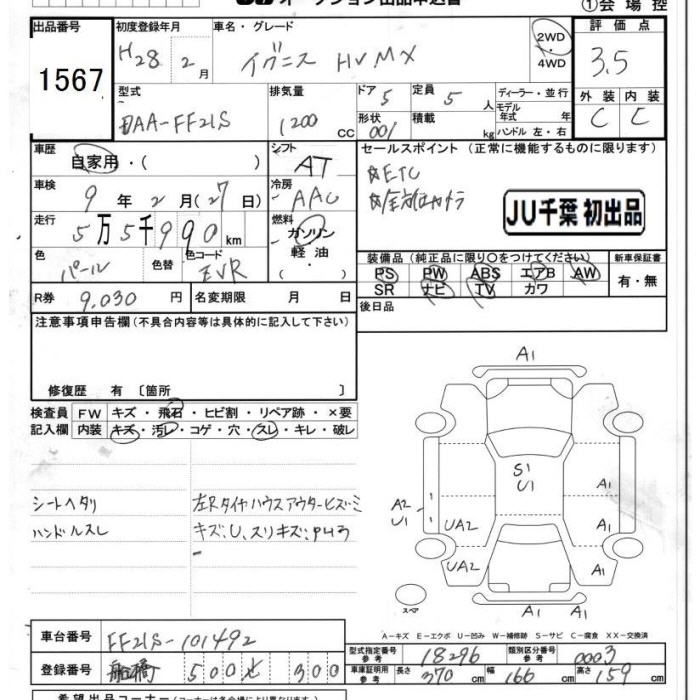 オークション出品申込書
①会場控
出品番号
1567
初度登録年月
H28 2月
車名・グレード
イグニス HV MX
2WD
4WD
評価点
3.5
型式
DAA-FF21S
排気量
1200 CC
ドア 5
形状 001
定員 5 人
積載 kg
ディーラー・並行
モデル年式 年
ハンドル 左・右
外装 内装
C C
車歴
自家用・( )
シフト
AT
セールスポイント (正常に機能するものに限ります)
☆ETC
☆全方位カメラ
JU千葉 初出品
車検
9年2月(27日)
冷房
AAC
走行
5万5千990km
燃料
ガソリン
軽油
・
色
パール
色替
色コード
EVR
装備品 (純正品に限り○をつけてください)
PS PW ABS エアB AW
SR ナビ TV カワ
新車保証書
有・無
R券 9,030円
名変期限 月 日
後日品
注意事項申告欄 (不具合内容等は具体的に記入して下さい)
修復歴 有 〔箇所 〕
検査員記入欄
FW キズ・飛石・ヒビ割・リペア跡・×要
内装 キズ・汚レ・コゲ・穴・スレ・キレ・破レ
シートヘタリ
ハンドルスレ
左Rタイヤハウスアウタービズ:ミ
キズ:U、スリキズ:
A1
S1
U1
A1
A1
A1
A2
U1
UA2
UA2
A1
スペア
A-キズ E-エクボ U-凹み W-補修跡 S-サビ C-腐食 XX-交換済
車台番号 FF21S-101492
登録番号 船橋 500 せ 300
型式指定番号 参考 18296
類別区分番号 参考 0003
車庫証明用 参考 長さ 370 cm 幅 166 cm 高さ 159 cm
希望出品コーナー (コーナーは各会場により異なります)